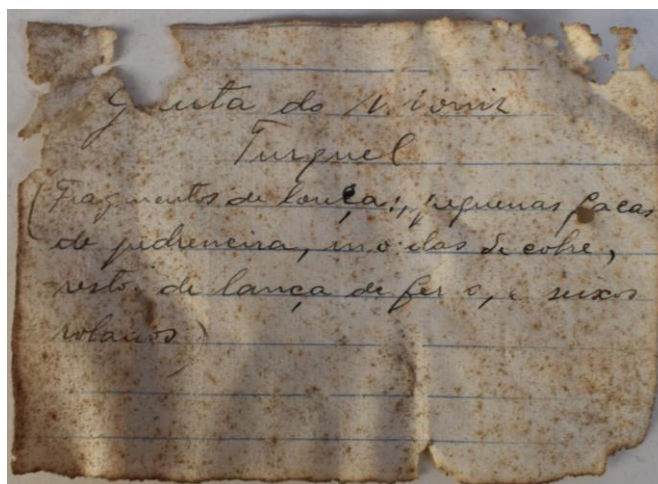 Gruta do
Turquel
(Fragmentos de louça, pequenas facas
de pedreneira, moedas de cobre,
restos de lança de ferro, e seixos
rolados)